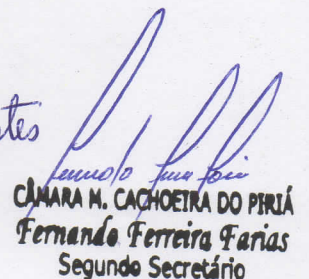 CÂMARA M. CACHOEIRA DO PIRIÁ
Fernando Ferreira Farias
Segundo Secretário